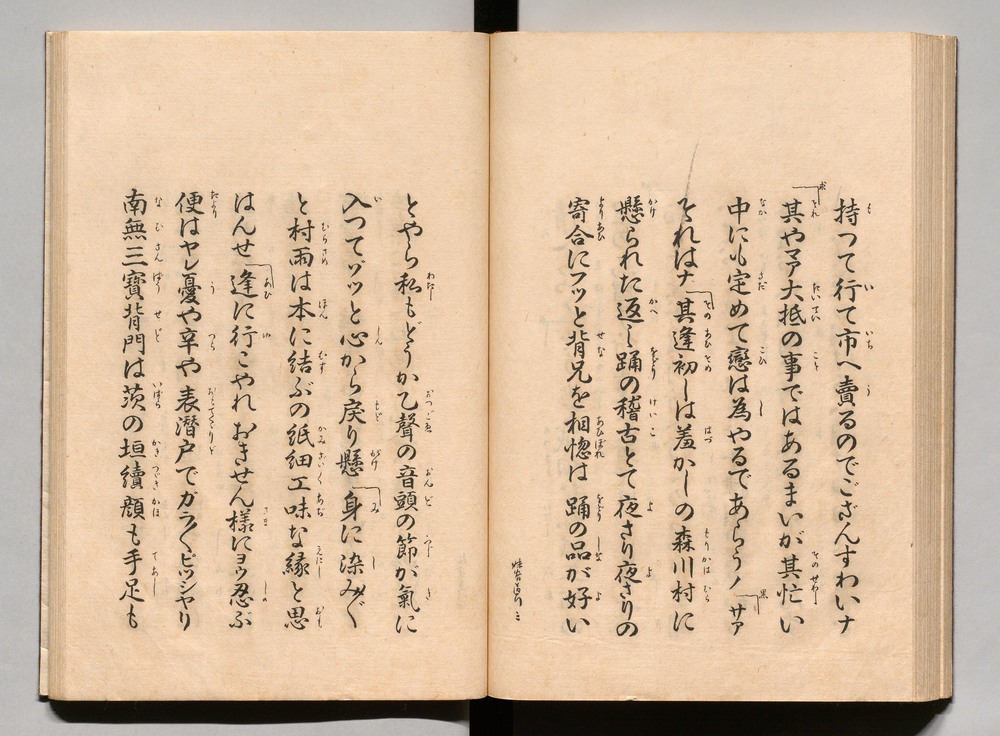 持つて行て市へ賣るのでござんすわいナ
其やマア大抵の事ではあるまいが其忙い
中にも定めて戀は為やるであらうノ サア
それはナ 其逢初しは羞かしの森川村に
懸られた返し踊の稽古とて夜さり夜さりの
寄合にフツと背兄を相惚は 踊の品が好い
とやら私もどうか乙聲の音頭の節が氣に
入つてヅッと心から戻り懸 身に染みぐ
と村雨は本に結ぶの紙細工味な縁と思
はんせ 逢に行こやれおきせん様にヨウ忍ぶ
便はヤレ憂や辛や 表潜戸でガラ〱ピッシャリ
南無三寶背門は茨の垣續顔も手足も